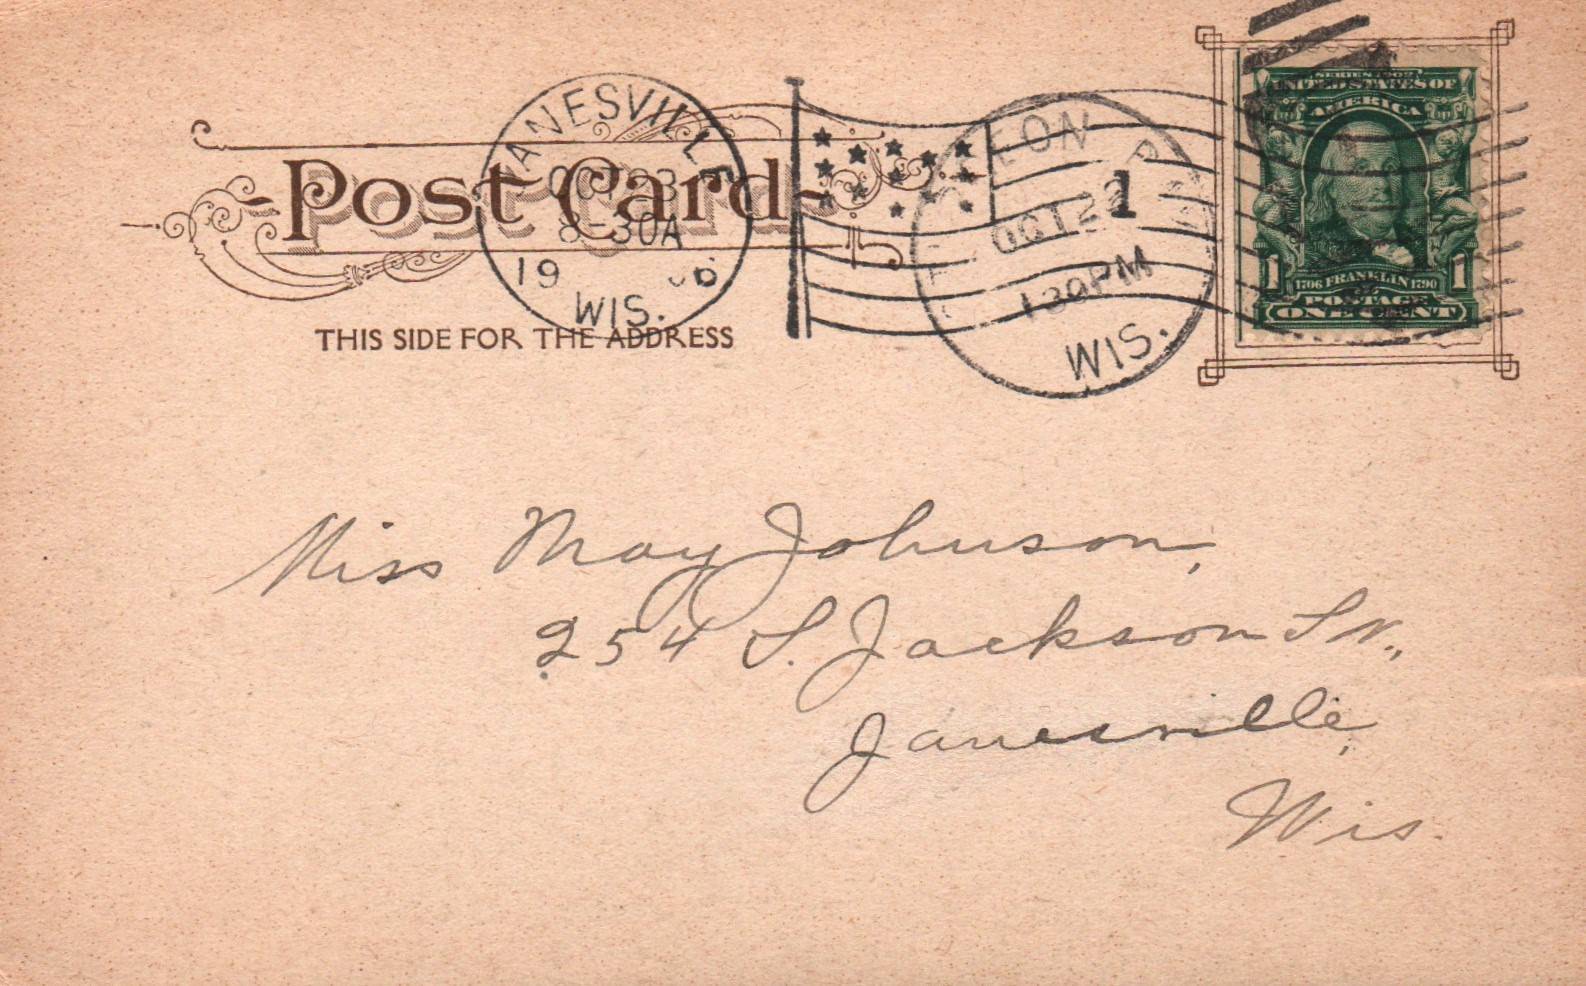 JANESVILLE
OCT 23
8-30A
19 06
WIS.
OCT 22
1 30 PM
WIS.
1
SERIES 1902
UNITED STATES OF
AMERICA
1 1706 FRANKLIN 1790 1
POSTAGE
ONE CENT
Post Card
THIS SIDE FOR THE ADDRESS
Miss May Johnson,
254 S. Jackson St.,
Janesville,
Wis.